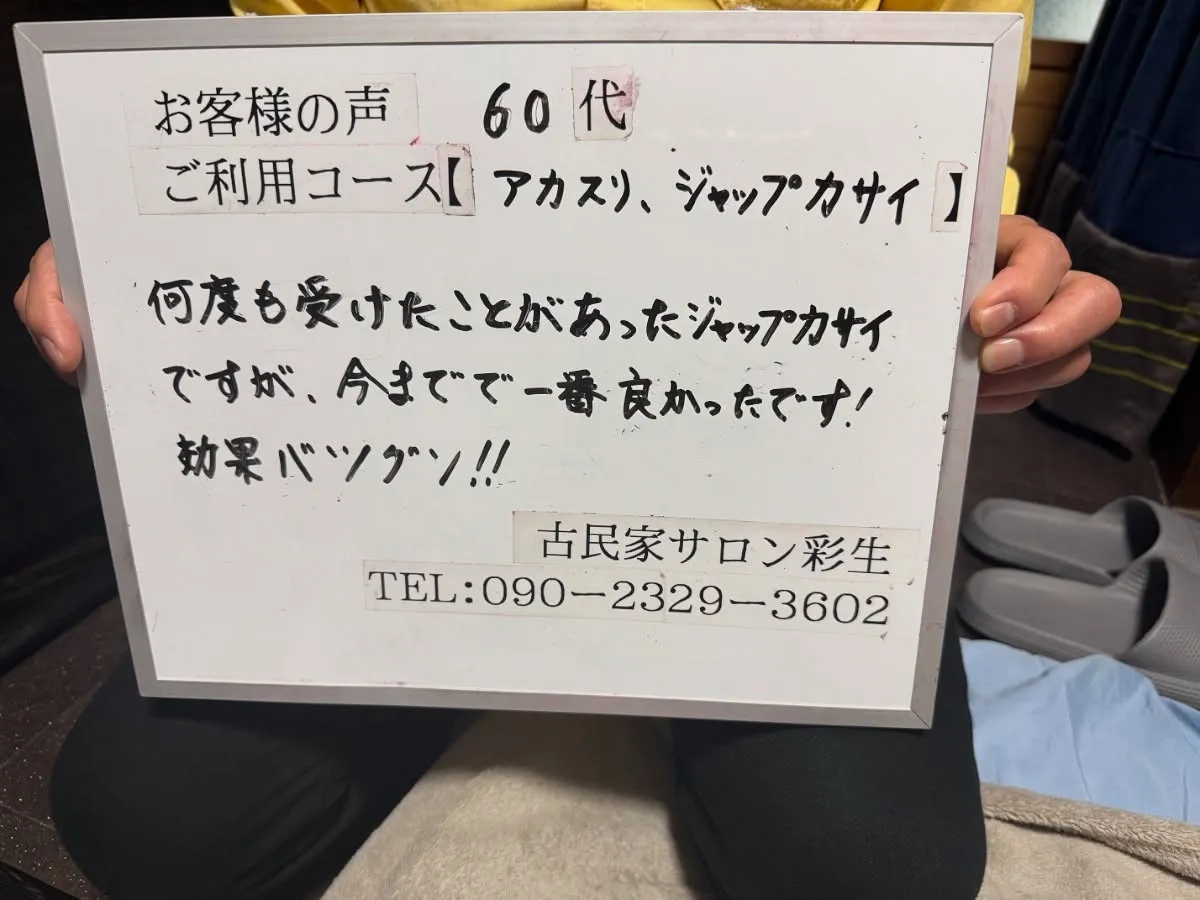 お客様の声 60代
ご利用コース【アカスリ、ジャップカサイ】
何度も受けたことがあったジャップカサイ
ですが、今までで一番良かったです!
効果バツグン!!
古民家サロン彩生
TEL:090-2329-3602